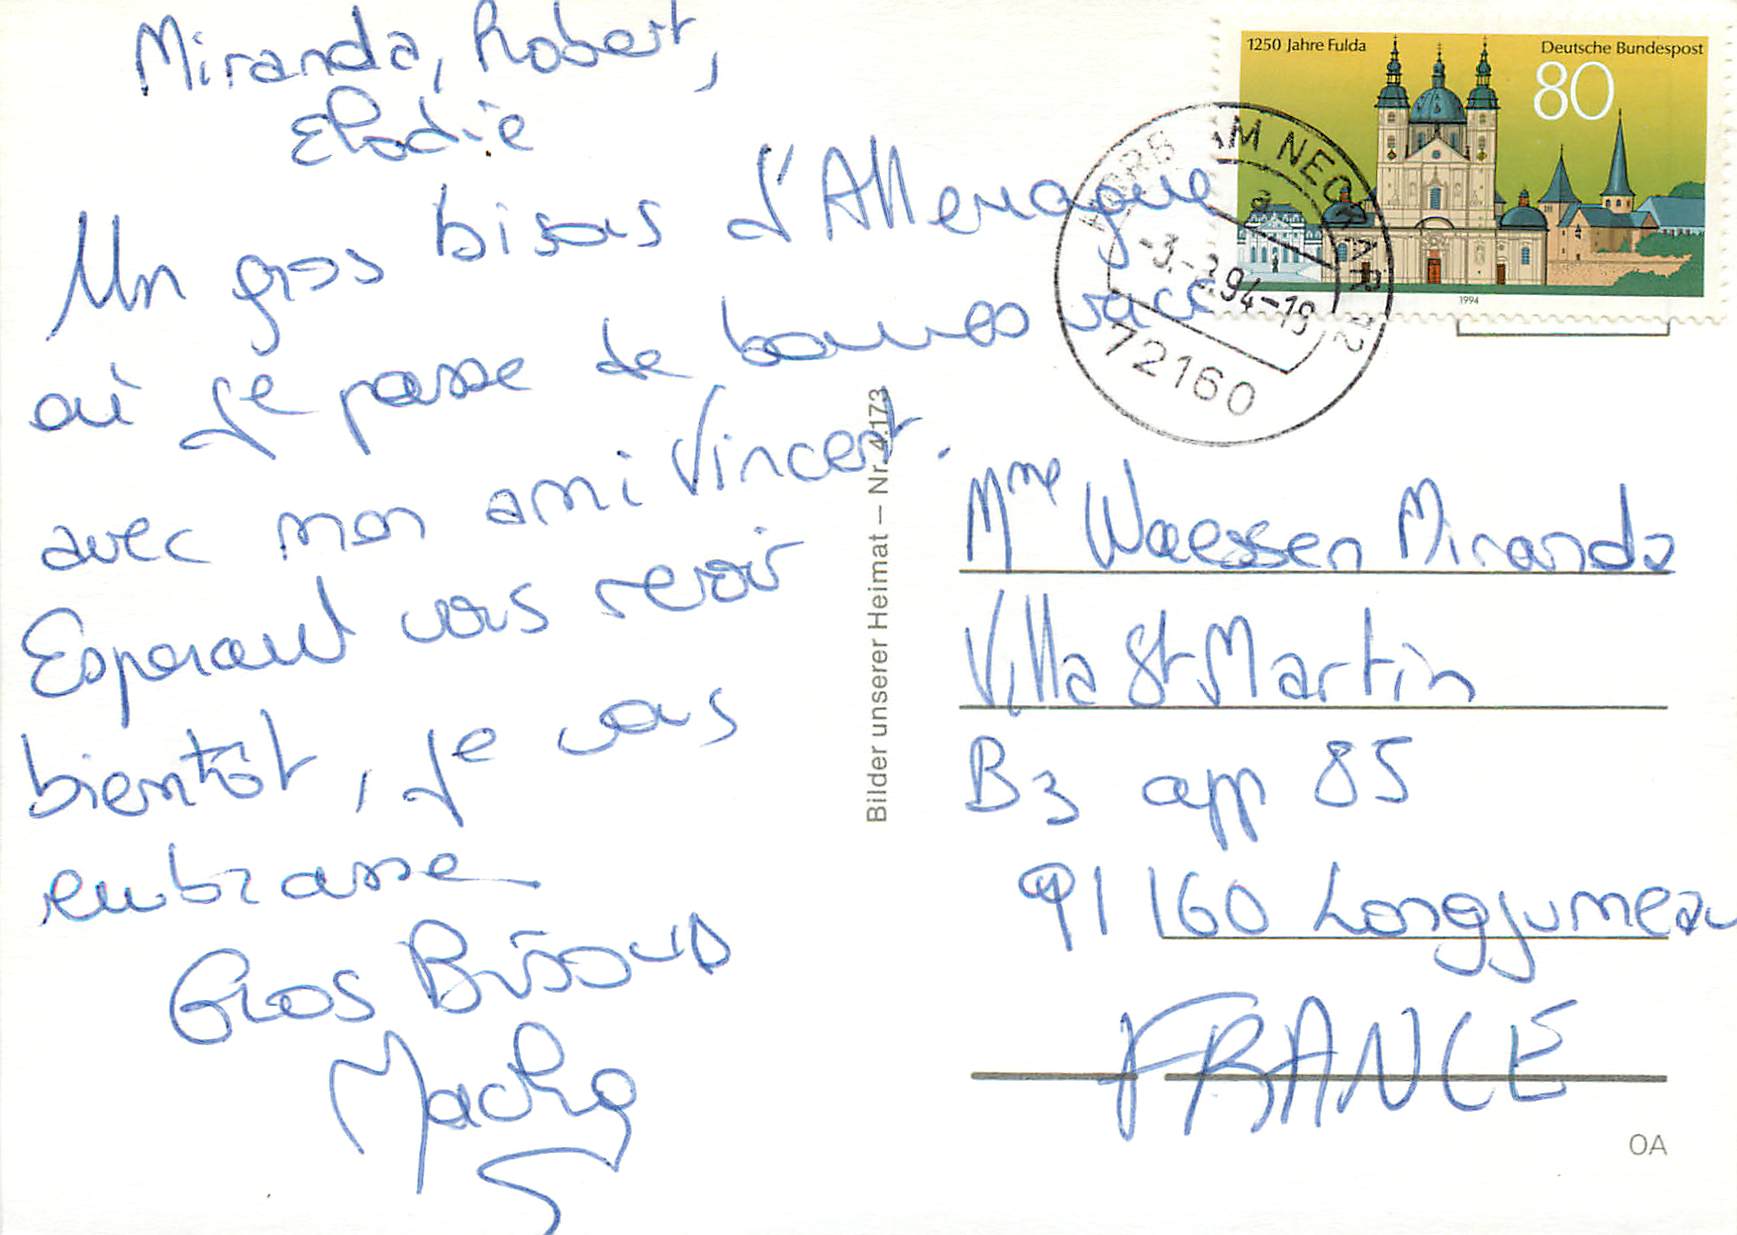 Miranda, Robert,
Elodie
Un gros bisous d'Allemagne
où je passe de bonnes vacc
avec mon ami Vincent.
Esperant vous revoir
bientôt, je vous
embrasse
Gros Bisous
1250 Jahre Fulda
Deutsche Bundespost
80
1994
HORB AM NECKAR 12
a
-3.-2.94-19
72160
Bilder unserer Heimat – Nr. 4.173
Mme Waessen Miranda
Villa St Martin
B3 app 85
91160 Longjumeau
FRANCE
OA